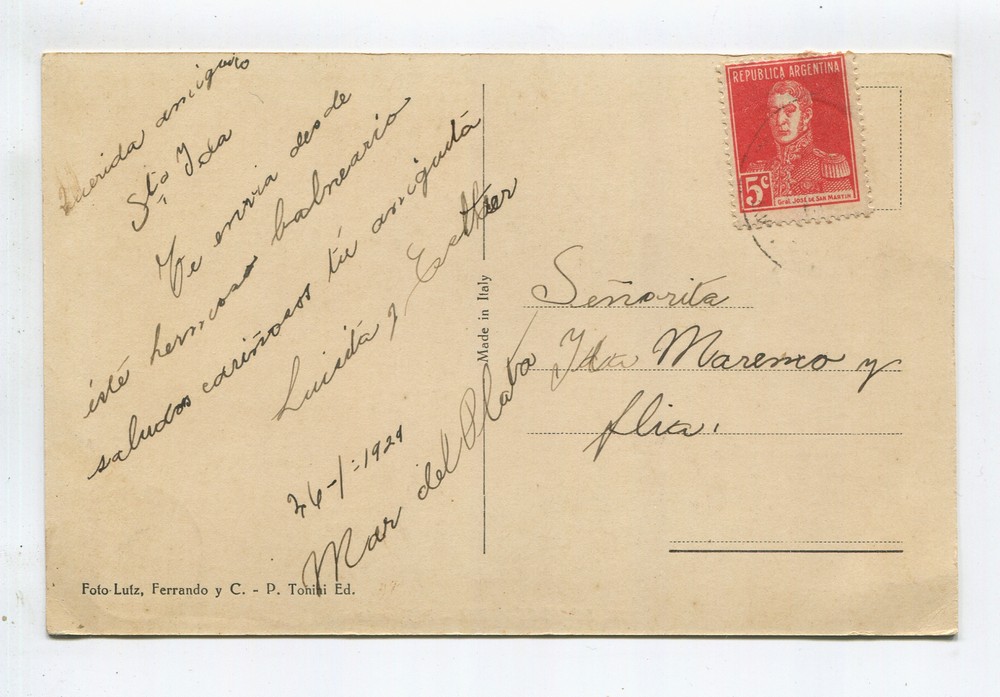 Querida amiguita
Sta Ida
Te envia desde
iste hermoso balneario
saludos cariñosos tú amiguita
Luisita y Esther
26-1-1929
Mar del Plata
Foto Lutz, Ferrando y C. - P. Tonini Ed.
Made in Italy
REPUBLICA ARGENTINA
5c
Gral. JOSÉ DE SAN MARTIN
Señorita
Ida Marenco y
flia.